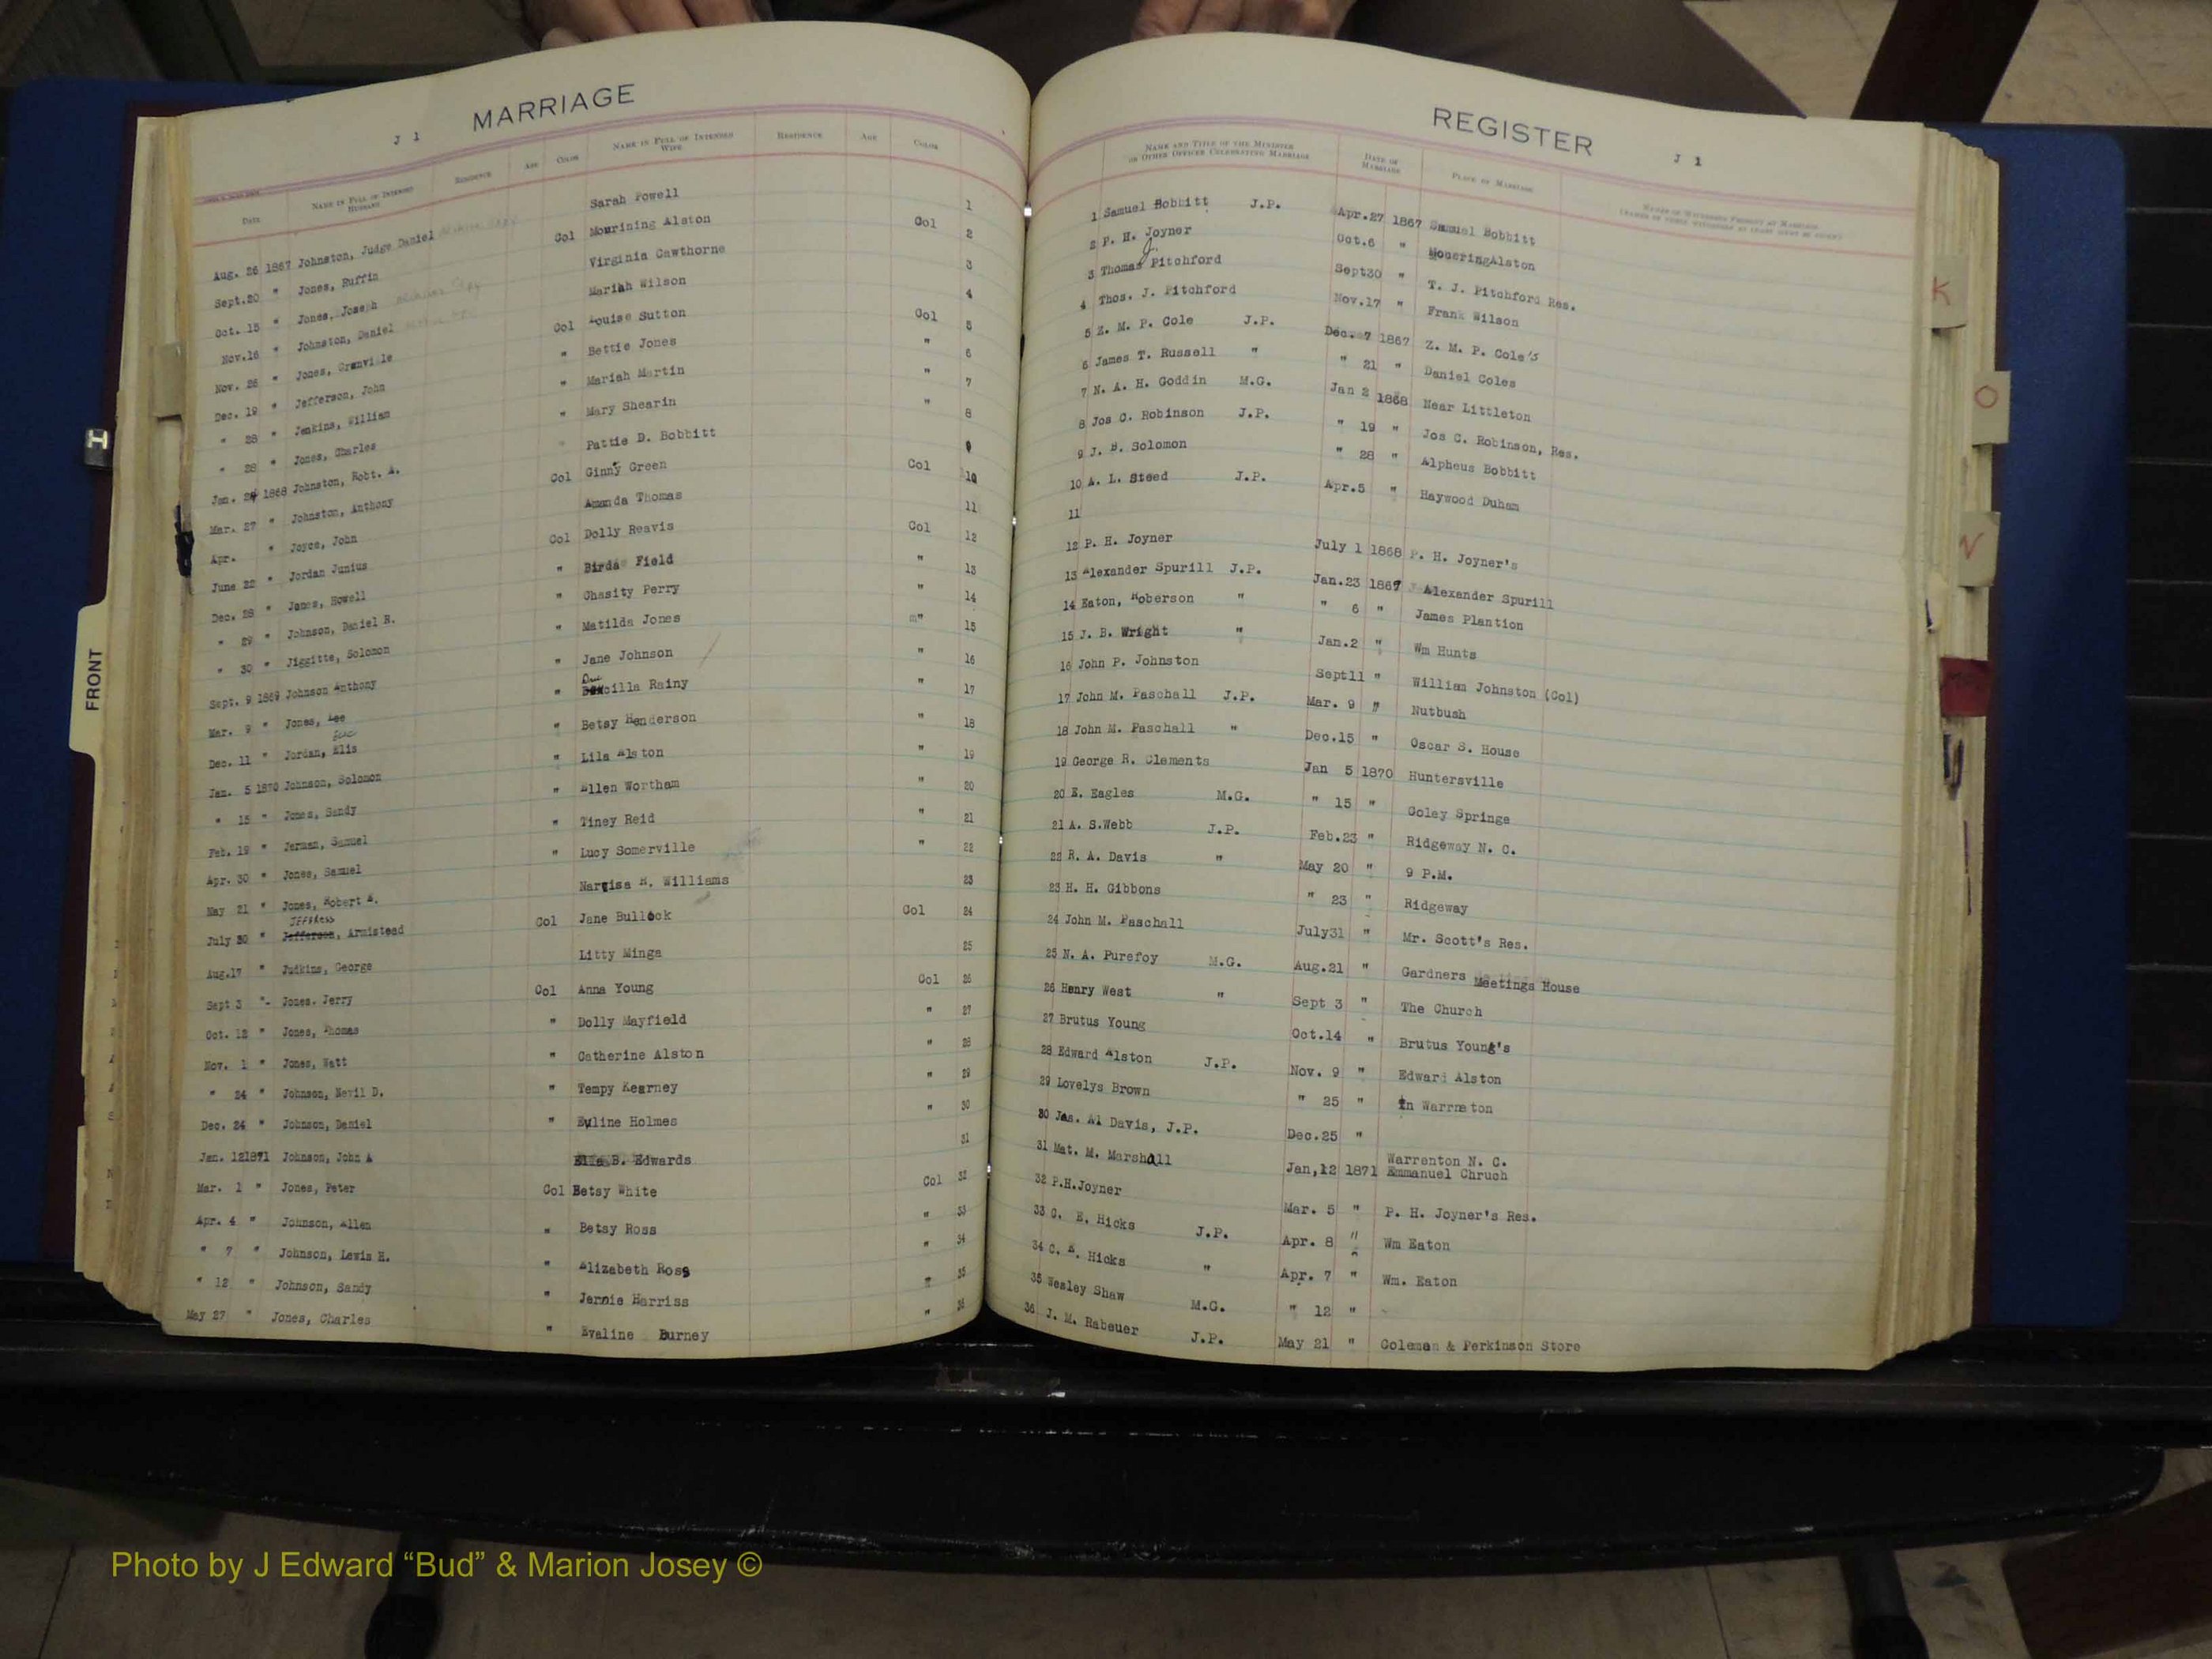 MARRIAGE
J 1
DATE NAME IN FULL OF INTENDED HUSBAND RESIDENCE AGE COLOR NAME IN FULL OF INTENDED WIFE RESIDENCE AGE COLOR
Aug. 26 1867 Johnston, Judge Daniel Sarah Powell 1
Sept.20 " Jones, Ruffin Col Mourining Alston Col 2
Oct. 15 " Jones, Joseph Virginia Cawthorne 3
Nov.16 " Johnston, Daniel Mariah Wilson 4
Nov. 26 " Jones, Granville Col Louise Sutton Col 5
Dec. 19 " Jefferson, John " Bettie Jones " 6
" 28 " Jenkins, William " Mariah Martin " 7
" 28 " Jones, Charles " Mary Shearin " 8
Jan. 1868 Johnston, Robt. A. Pattie D. Bobbitt 9
Mar. 27 " Johnston, Anthony Col Ginny Green Col 10
Apr. " Joyce, John Amanda Thomas 11
June 22 " Jordan Junius Col Dolly Reavis Col 12
Dec. 28 " Jones, Howell " Birda Field " 13
" 29 " Johnson, Daniel R. " Chasity Perry " 14
" 30 " Jiggitts, Solomon " Matilda Jones " 15
Sept. 9 1869 Johnson Anthony " Jane Johnson " 16
Mar. 9 " Jones, Lee " Rainy " 17
Dec. 11 " Jordan, Elis " Betsy Henderson " 18
Jan. 5 1870 Johnson, Solomon " Lila Alston " 19
" 15 " Jones, Sandy " Ellen Wortham " 20
Feb. 19 " Jerman, Samuel " Tiney Reid " 21
Apr. 30 " Jones, Samuel " Lucy Somerville " 22
May 21 " Jones, Robert A. Narcisa R. Williams 23
July 30 " Jefferson, Armistead Col Jane Bullock Col 24
Aug.17 " Judkins, George Litty Minga 25
Sept 3 "- Jones. Jerry Col Anna Young Col 26
Oct. 12 " Jones, Thomas " Dolly Mayfield " 27
Nov. 1 " Jones, Watt " Catherine Alston " 28
" 24 " Johnson, Nevil D. " Tempy Kearney " 29
Dec. 24 " Johnson, Daniel " Euline Holmes " 30
Jan. 121871 Johnson, John A Ella B. Edwards 31
Mar. 1 " Jones, Peter Col Betsy White Col 32
Apr. 4 " Johnson, Allen " Betsy Ross " 33
" 7 " Johnson, Lewis H. " Elizabeth Ross " 34
" 12 " Johnson, Sandy " Jennie Harriss " 35
May 27 " Jones, Charles " Evaline Burney " 36
REGISTER
J 1
NAME AND TITLE OF THE MINISTER OR OTHER OFFICER CELEBRATING MARRIAGE DATE OF MARRIAGE PLACE OF MARRIAGE
1 Samuel Bobbitt J.P. Apr.27 1867 Samuel Bobbitt
2 P. H. Joyner Oct.6 " MoueringAlston
3 Thomas J. Pitchford Sept30 " T. J. Pitchford Res.
4 Thos. J. Pitchford Nov.17 " Frank Wilson
5 Z. M. P. Cole J.P. Dec. 7 1867 Z. M. P. Cole's
6 James T. Russell " " 21 " Daniel Coles
7 N. A. H. Goddin M.G. Jan 2 1868 Near Littleton
8 Jos C. Robinson J.P. " 19 " Jos C. Robinson, Res.
9 J. B. Solomon " 28 " Alpheus Bobbitt
10 A. L. Steed J.P. Apr.5 " Haywood Duham
11
12 P. H. Joyner July 1 1868 P. H. Joyner's
13 Alexander Spurill J.P. Jan.23 1869 Alexander Spurill
14 Eaton, Roberson " " 6 " James Plantion
15 J. B. Wright " Jan.2 " Wm Hunts
16 John P. Johnston Sept11 " William Johnston (Col)
17 John M. Paschall J.P. Mar. 9 " Nutbush
18 John M. Paschall " Dec.15 " Oscar S. House
19 George R. Clements Jan 5 1870 Huntersville
20 E. Eagles M.G. " 15 " Coley Springs
21 A. S.Webb J.P. Feb.23 " Ridgeway N. C.
22 R. A. Davis " May 20 " 9 P.M.
23 H. H. Gibbons " 23 " Ridgeway
24 John M. Paschall July31 " Mr. Scott's Res.
25 N. A. Purefoy M.G. Aug.21 " Gardners Meetings House
26 Henry West " Sept 3 " The Church
27 Brutus Young Oct.14 " Brutus Young's
28 Edward Alston J.P. Nov. 9 " Edward Alston
29 Lovelys Brown " 25 " In Warrneton
30 Jas. Al Davis, J.P. Dec.25 "
31 Mat. M. Marshall Jan,12 1871 Warrenton N. C. Emmanuel Chruch
32 P.H.Joyner Mar. 5 " P. H. Joyner's Res.
33 C. E. Hicks J.P. Apr. 8 " Wm Eaton
34 C. E. Hicks " Apr. 7 " Wm. Eaton
35 Wesley Shaw M.G. " 12 "
36 J. M. Rabeuer J.P. May 21 " Coleman & Perkinson Store
FRONT
K
O
N
Photo by J Edward “Bud” & Marion Josey ©